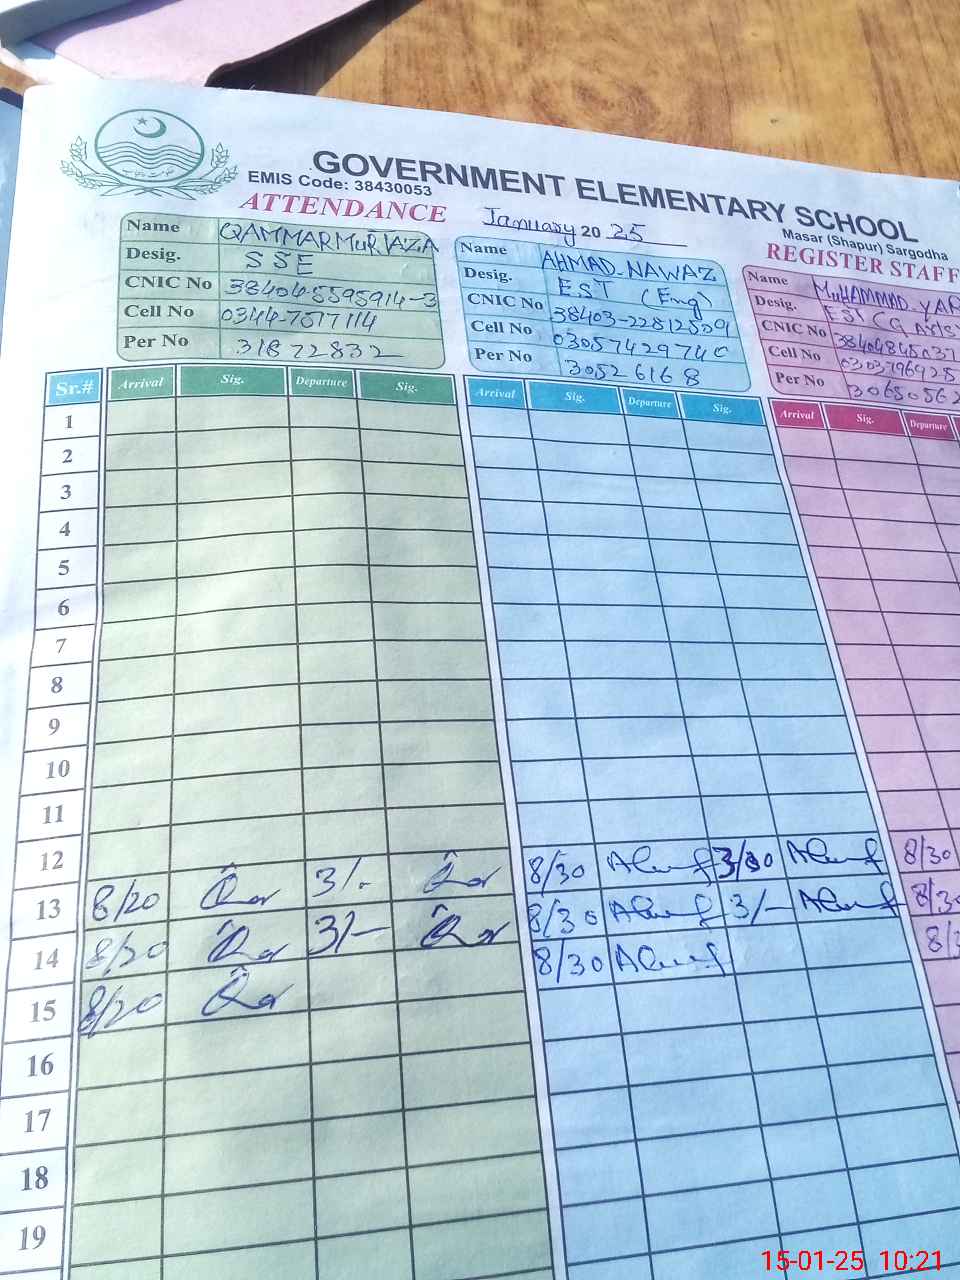 GOVERNMENT ELEMENTARY SCHOOL
EMIS Code: 38430053
Masar (Shapur) Sargodha
ATTENDANCE January 2025 REGISTER STAFF
Name QAMMAR MURTAZA
Desig. SSE
CNIC No 38404-5595914-3
Cell No 0344-7517114
Per No 31872832
Name AHMAD NAWAZ
Desig. EST (Eng)
CNIC No 38403-22812509
Cell No 0305742974
Per No 30526168
Name MUHAMMAD YAR
Desig. EST
CNIC No 38404845037
Cell No 0303796925
Per No 3068056
Sr.# Arrival Sig. Departure Sig. Arrival Sig. Departure Sig. Arrival Sig. Departure
1
2
3
4
5
6
7
8
9
10
11
12 8/30 3/30 8/30
13 8/20 3/- 8/30 3/- 8/30
14 8/20 3/- 8/30 8/3
15 8/20
16
17
18
19
15-01-25 10:21